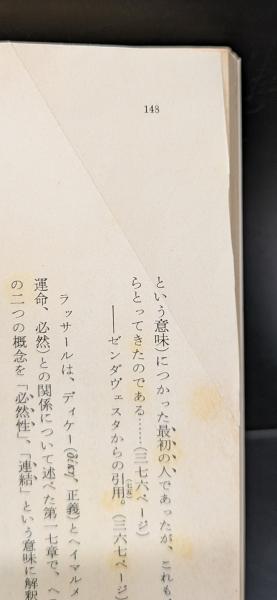 148
という意味)につかった最初の人であったが、これも、
らとってきたのである……(三七六ページ)
――ゼンダヴェスタからの引用。(七五)(三六七ページ)
ラッサールは、ディケー(δίκη、正義)とヘイマルメ
運命、必然)との関係について述べた第一七章で、ヘ
の二つの概念を「必然性」、「連結」という意味に解釈